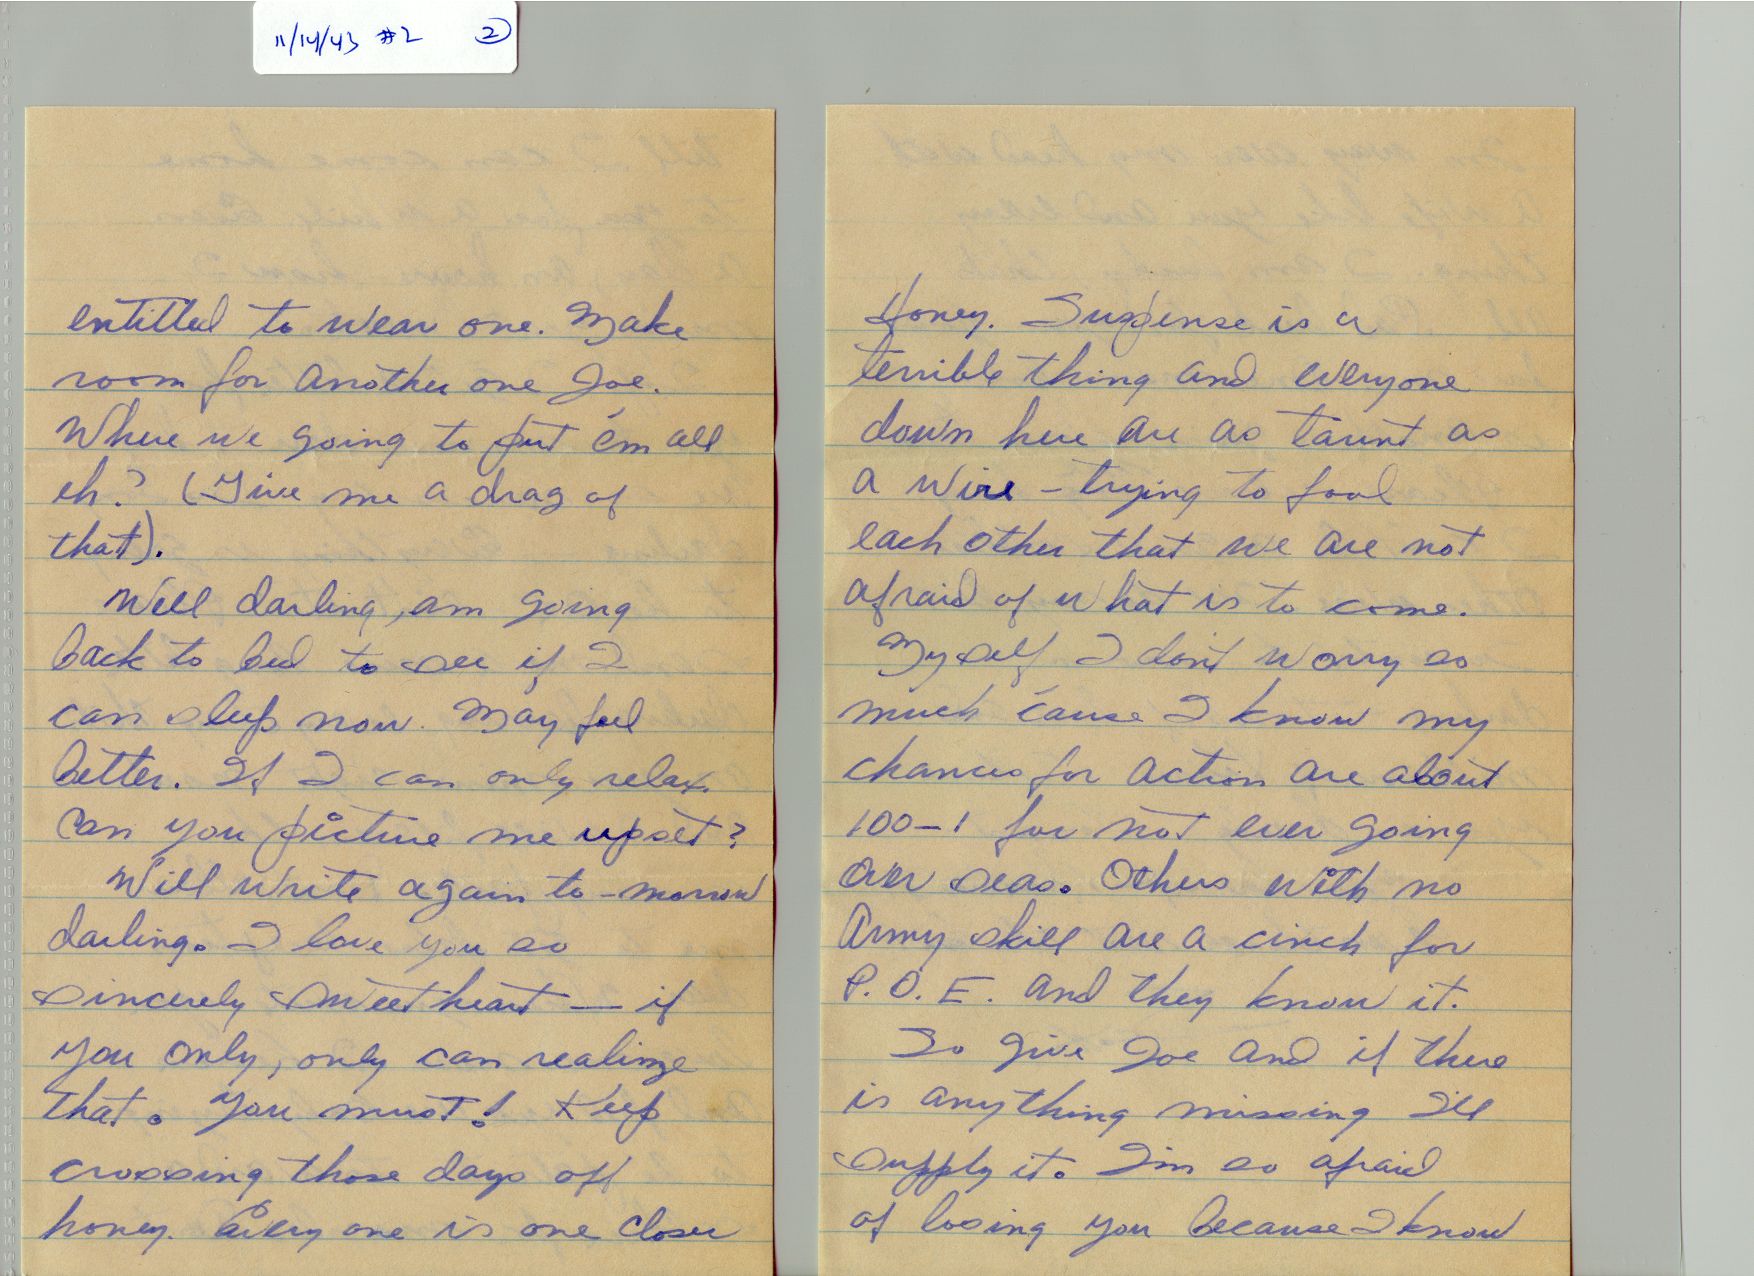 11/14/43 #2 2
entitled to wear one. Make
room for another one Joe.
Where we going to put 'em all
eh? (Give me a drag of
that).
Well darling, am going
back to bed to see if I
can sleep now. May feel
better. If I can only relax.
Can you picture me upset?
Will write again to-morrow
darling. I love you so
sincerely sweetheart — if
you only, only can realize
that. You must! Keep
crossing those days off
honey. Every one is one closer
Honey. Suspense is a
terrible thing and everyone
down here are as taunt as
a wire - trying to fool
each other that we are not
afraid of what is to come.
Myself I don't worry so
much 'cause I know my
chances for action are about
100-1 for not ever going
over seas. Others with no
Army skill are a cinch for
P.O.E. and they know it.
So give Joe and if there
is anything missing I'll
supply it. I'm so afraid
of losing you because I know